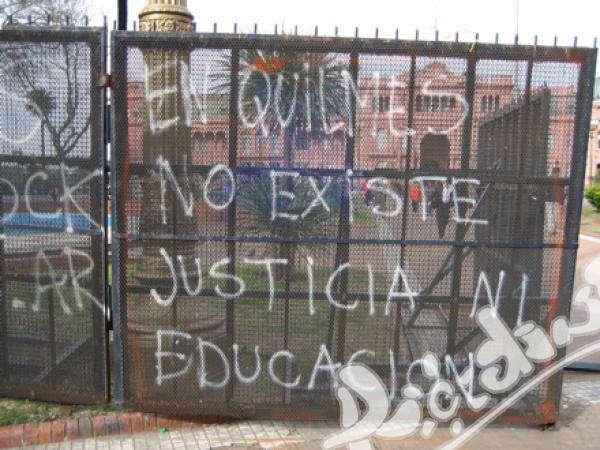 EN QUILMES
NO EXISTE
JUSTICIA NI
EDUCACION
OCK
.AR